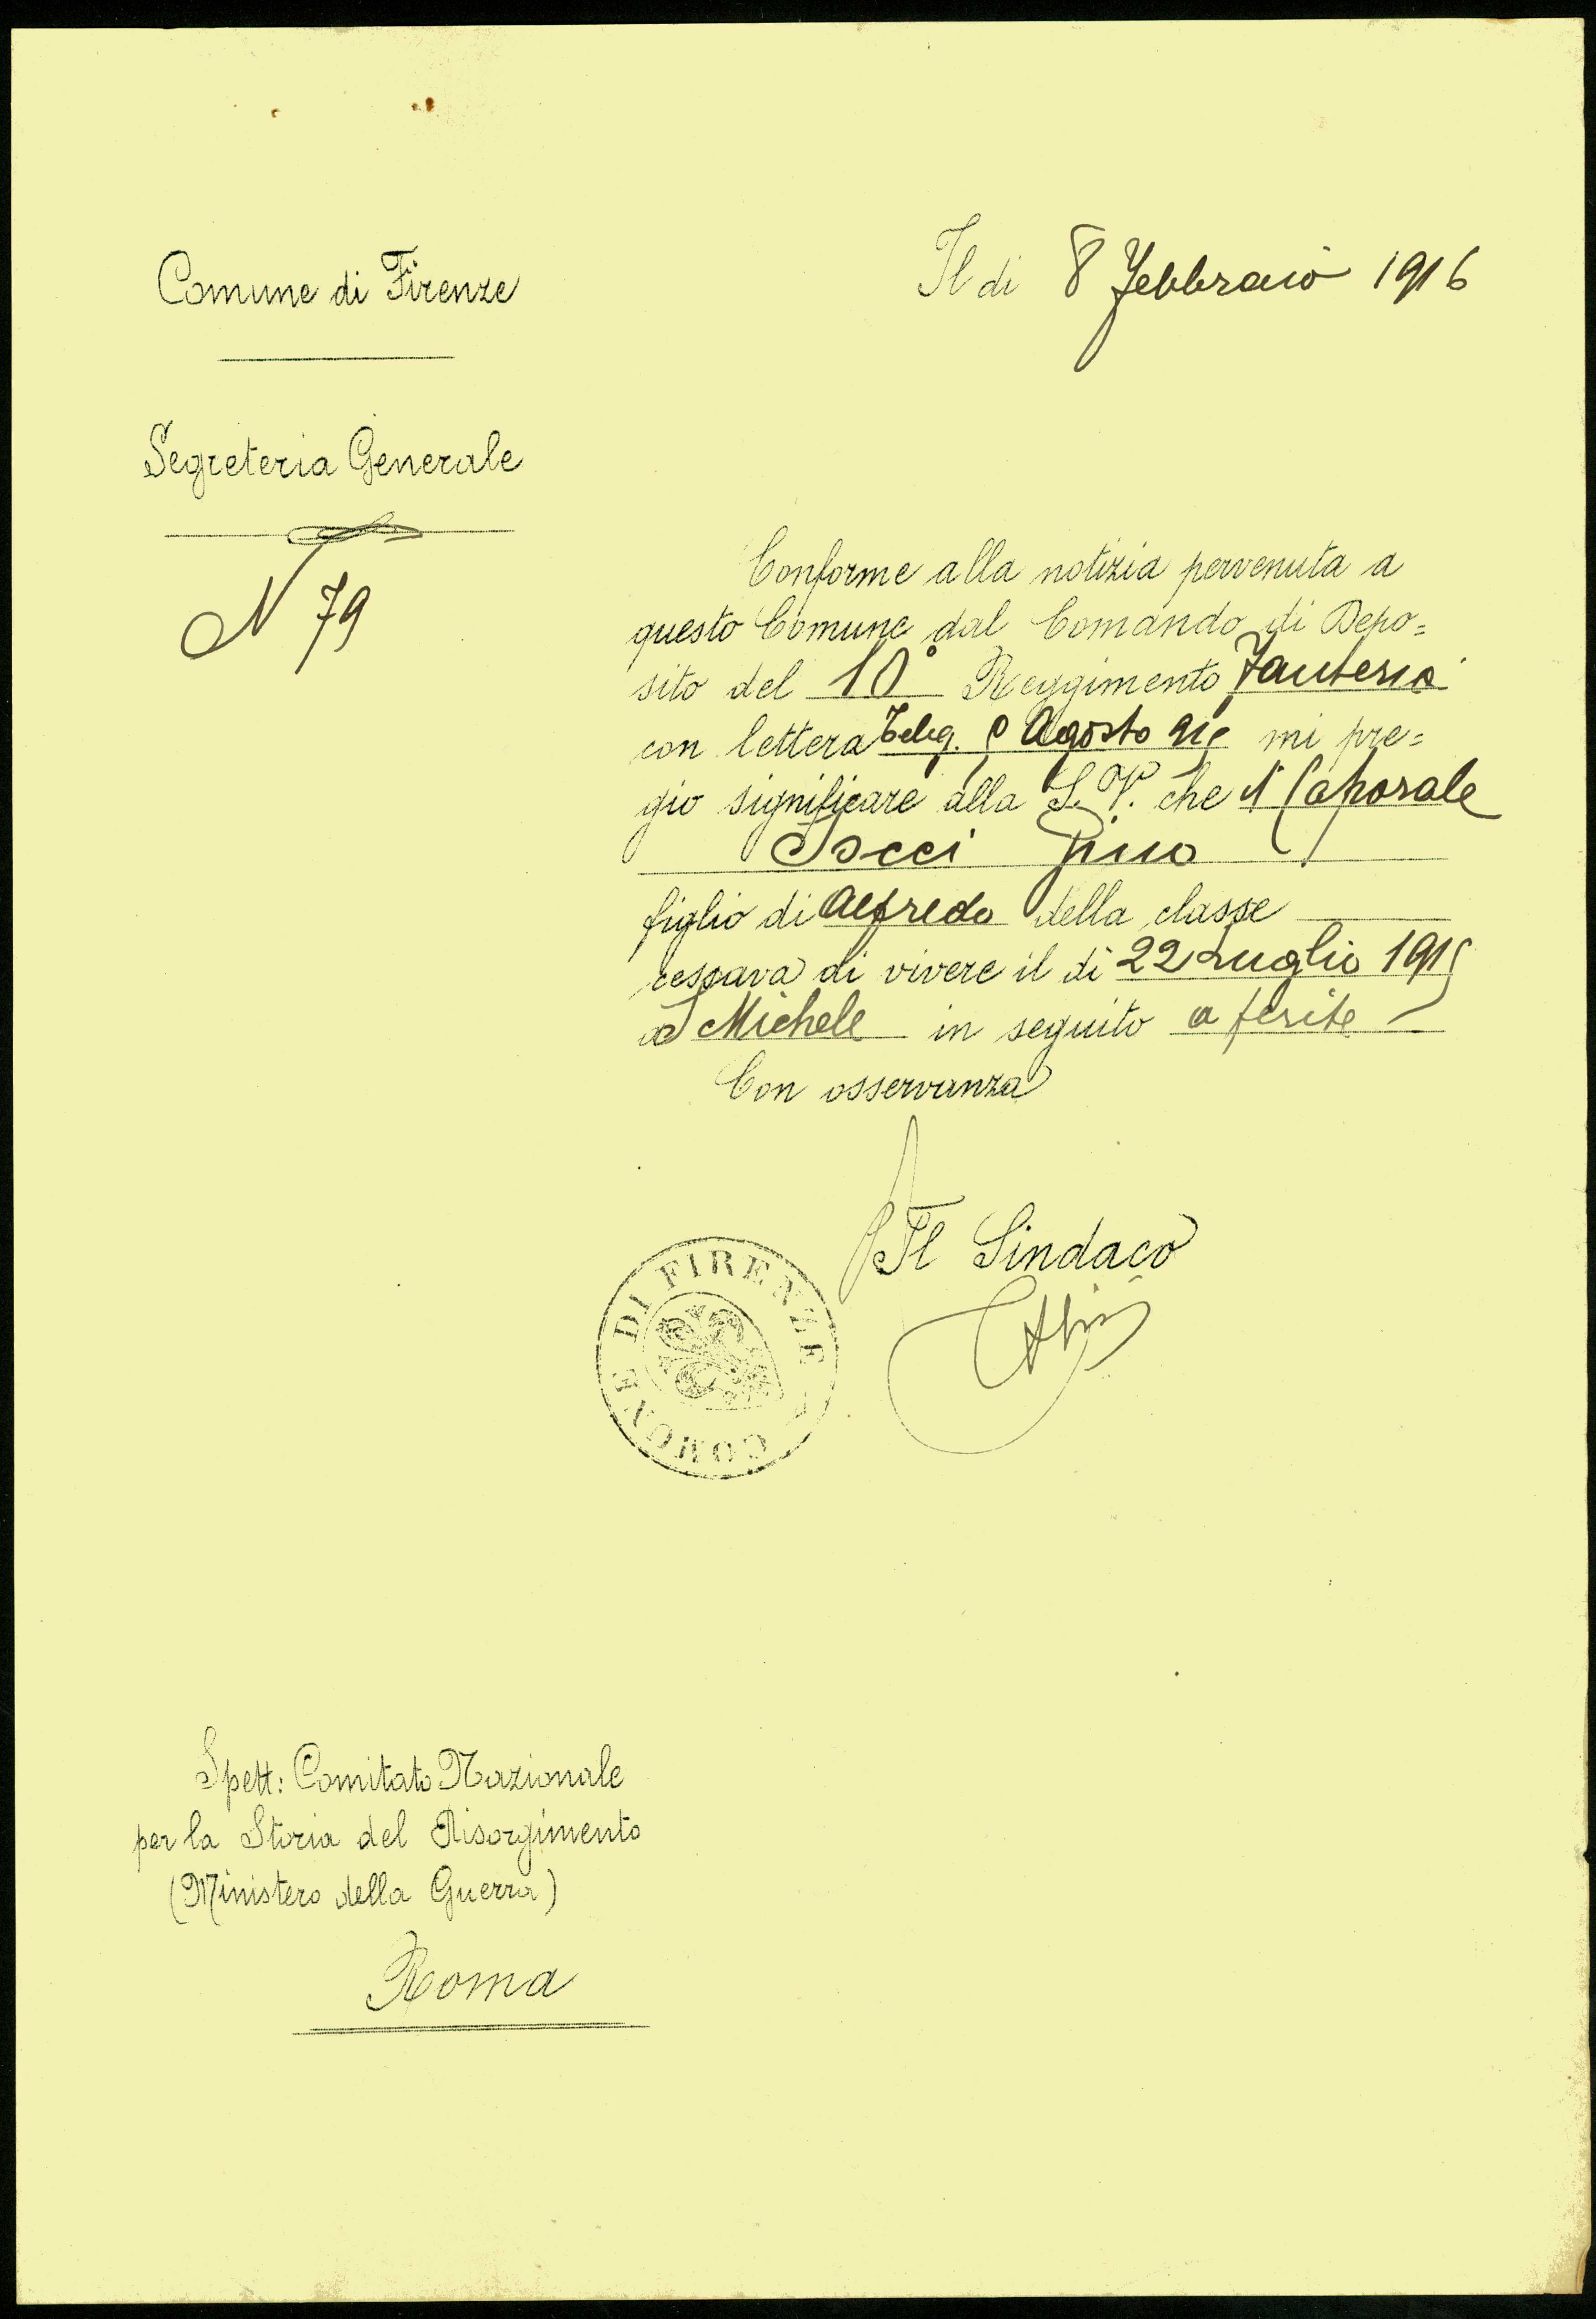 Comune di Firenze
Segreteria Generale
N 79
Il di 8 Febbraio 1916
Conforme alla notizia pervenuta a
questo Comune dal Comando di Depo=
sito del 10° Reggimento Fanteria
con lettera Teleg. Agosto 915 mi pre=
gio significare alla S. V. che il Caporale
Socci Gino
figlio di Alfredo della classe
cessava di vivere il di 22 Luglio 1915
a S Michele in seguito a ferite
Con osservanza
Il Sindaco
COMUNE DI FIRENZE
Spett: Comitato Nazionale
per la Storia del Risorgimento
(Ministero della Guerra)
Roma